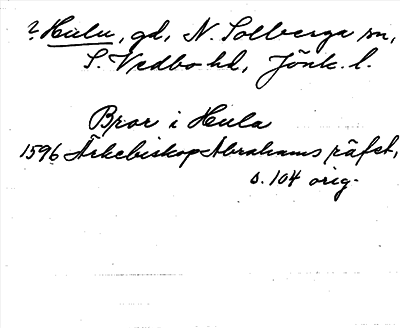 ? Hulu, gd, N. Solberga sn,
S. Vedbo hd, Jönk. l.
Bror i Hula
1596 Ärkebiskop Abrahams räfst,
s. 104 orig.